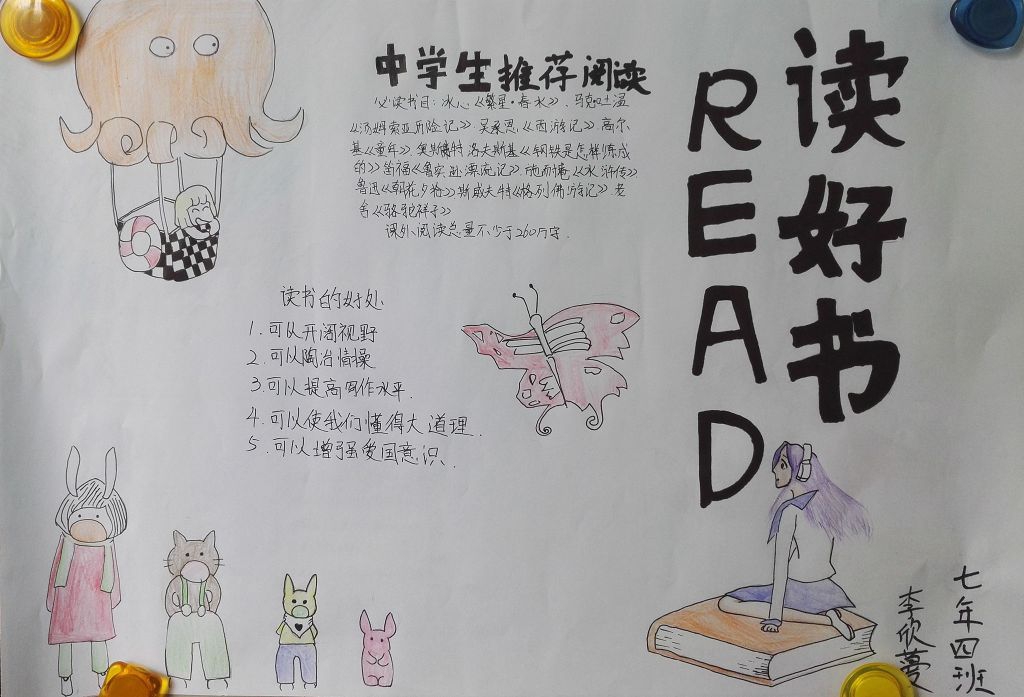 中学生推荐阅读
必读书目：冰心《繁星·春水》、马克吐温
《汤姆索亚历险记》吴承恩《西游记》高尔
基《童年》、奥斯特洛夫斯基《钢铁是怎样炼成
的》笛福《鲁宾逊漂流记》、施耐庵《水浒传》
鲁迅《朝花夕拾》斯威夫特《格列佛游记》老
舍《骆驼祥子》
课外阅读总量不少于260万字.
读书的好处
1.可以开阔视野
2.可以陶冶情操
3.可以提高写作水平.
4.可以使我们懂得大道理.
5.可以增强爱国意识.
READ
读好书
七年四班
李欣蔓